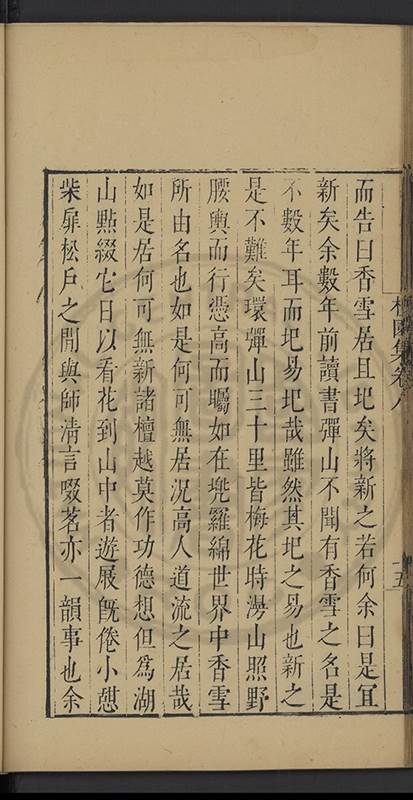 而告曰香雪居且圯矣將新之若何余曰是冝
新矣余數年前讀書彈山不聞有香雪之名是
不數年耳而圯易圯哉雖然其圯之易也新之
是不難矣環彈山三十里皆梅花時漫山照野
腰輿而行憑高而矚如在兜羅綿世界中香雪
所由名也如是何可無居況高人道流之居哉
如是居何可無新諸檀越莫作功德想但爲湖
山點綴它日以看花到山中者遊屐旣倦小憇
柴扉松戶之閒與師淸言啜茗亦一韻事也余
集卷八
十五